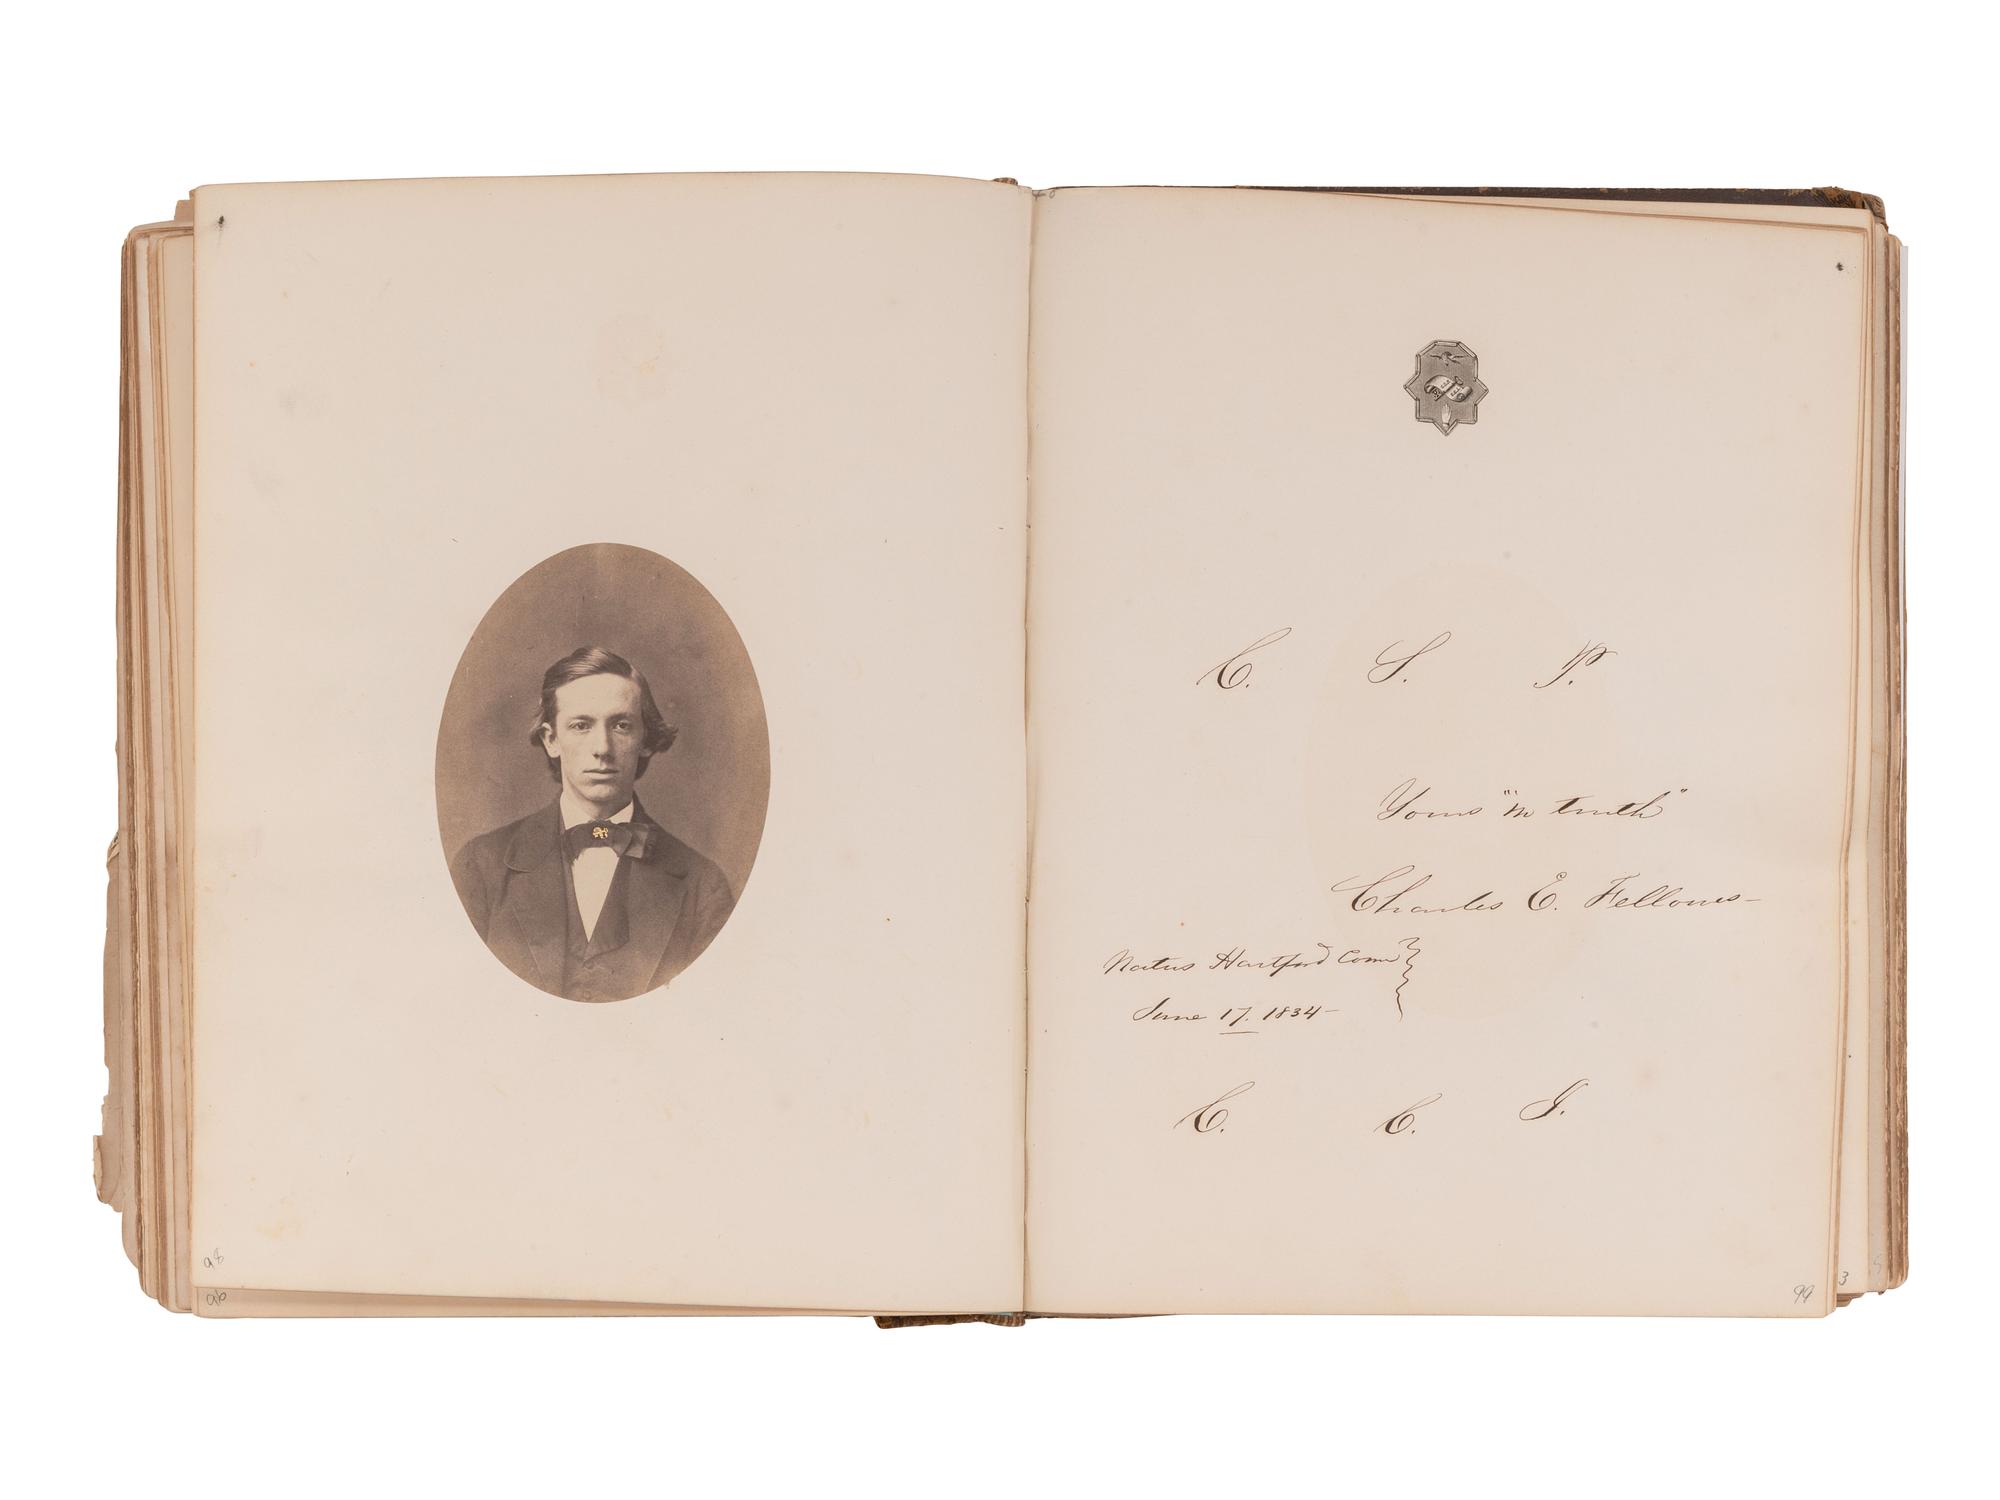 C. S. P.
Yours "in truth"
Charles E. Fellowes-
Natus Hartford Conn
June 17. 1834-
C. C. J.
98
96
99
3